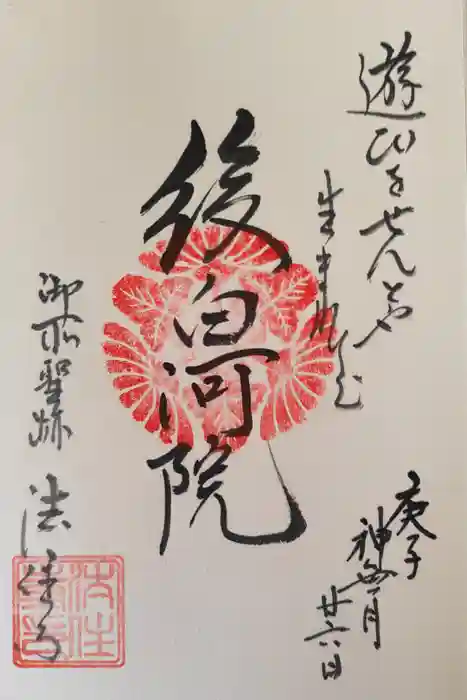 遊びをせんとや
生まれけむ
後白河院
御所聖跡
法住寺
庚子
神無月
廿六日